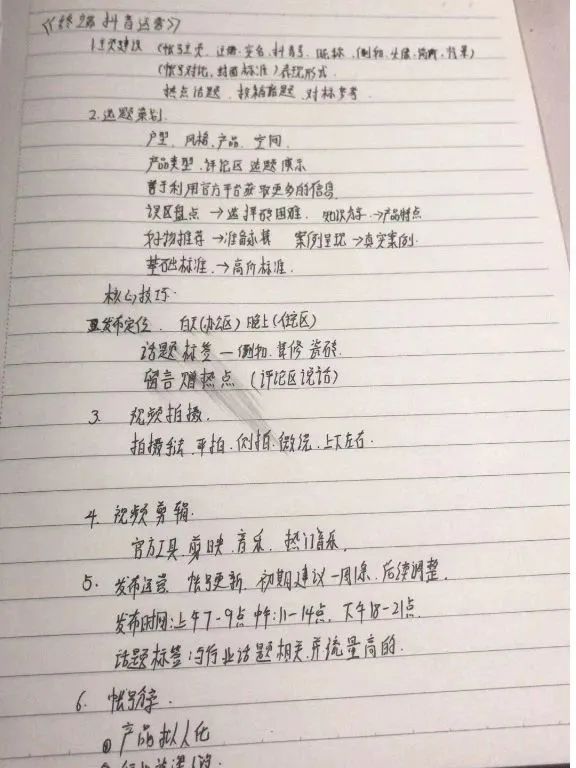 《终端抖音运营》
1.主页建议 (帐号主页、注册、实名、抖音号、昵称、例如、头像、简介、背景)
(帐号对比、封面标准) 表现形式.
热点话题、 营销话题、对标参考.
2.选题策划.
户型、风格、产品、空间.
产品类型、评论区选题演示
善于利用官方平台获取更多的信息.
误区盘点 → 选择砖困难. 知识分享 → 产品特点
好物推荐 → 准备 案例呈现 → 真实案例.
基础标准. → 高阶标准.
核心技巧.
发布定位. 白天(办公区) 晚上(住宅区)
话题标签 — 例如. 装修 瓷砖.
留言 热点 (评论区说话)
3. 视频拍摄.
拍摄手法. 平拍. 侧拍. 微 . 上下左右.
4. 视频剪辑.
官方工具. 剪映. 音乐. 热门音乐.
5. 发布运营. 帐号更新. 初期建议一周 条. 后续调整.
发布时间:上午7-9点 中午:11-14点. 下午18-21点.
话题标签:与行业话题相关并流量高的.
6. 帐号分享.
① 产品拟人化